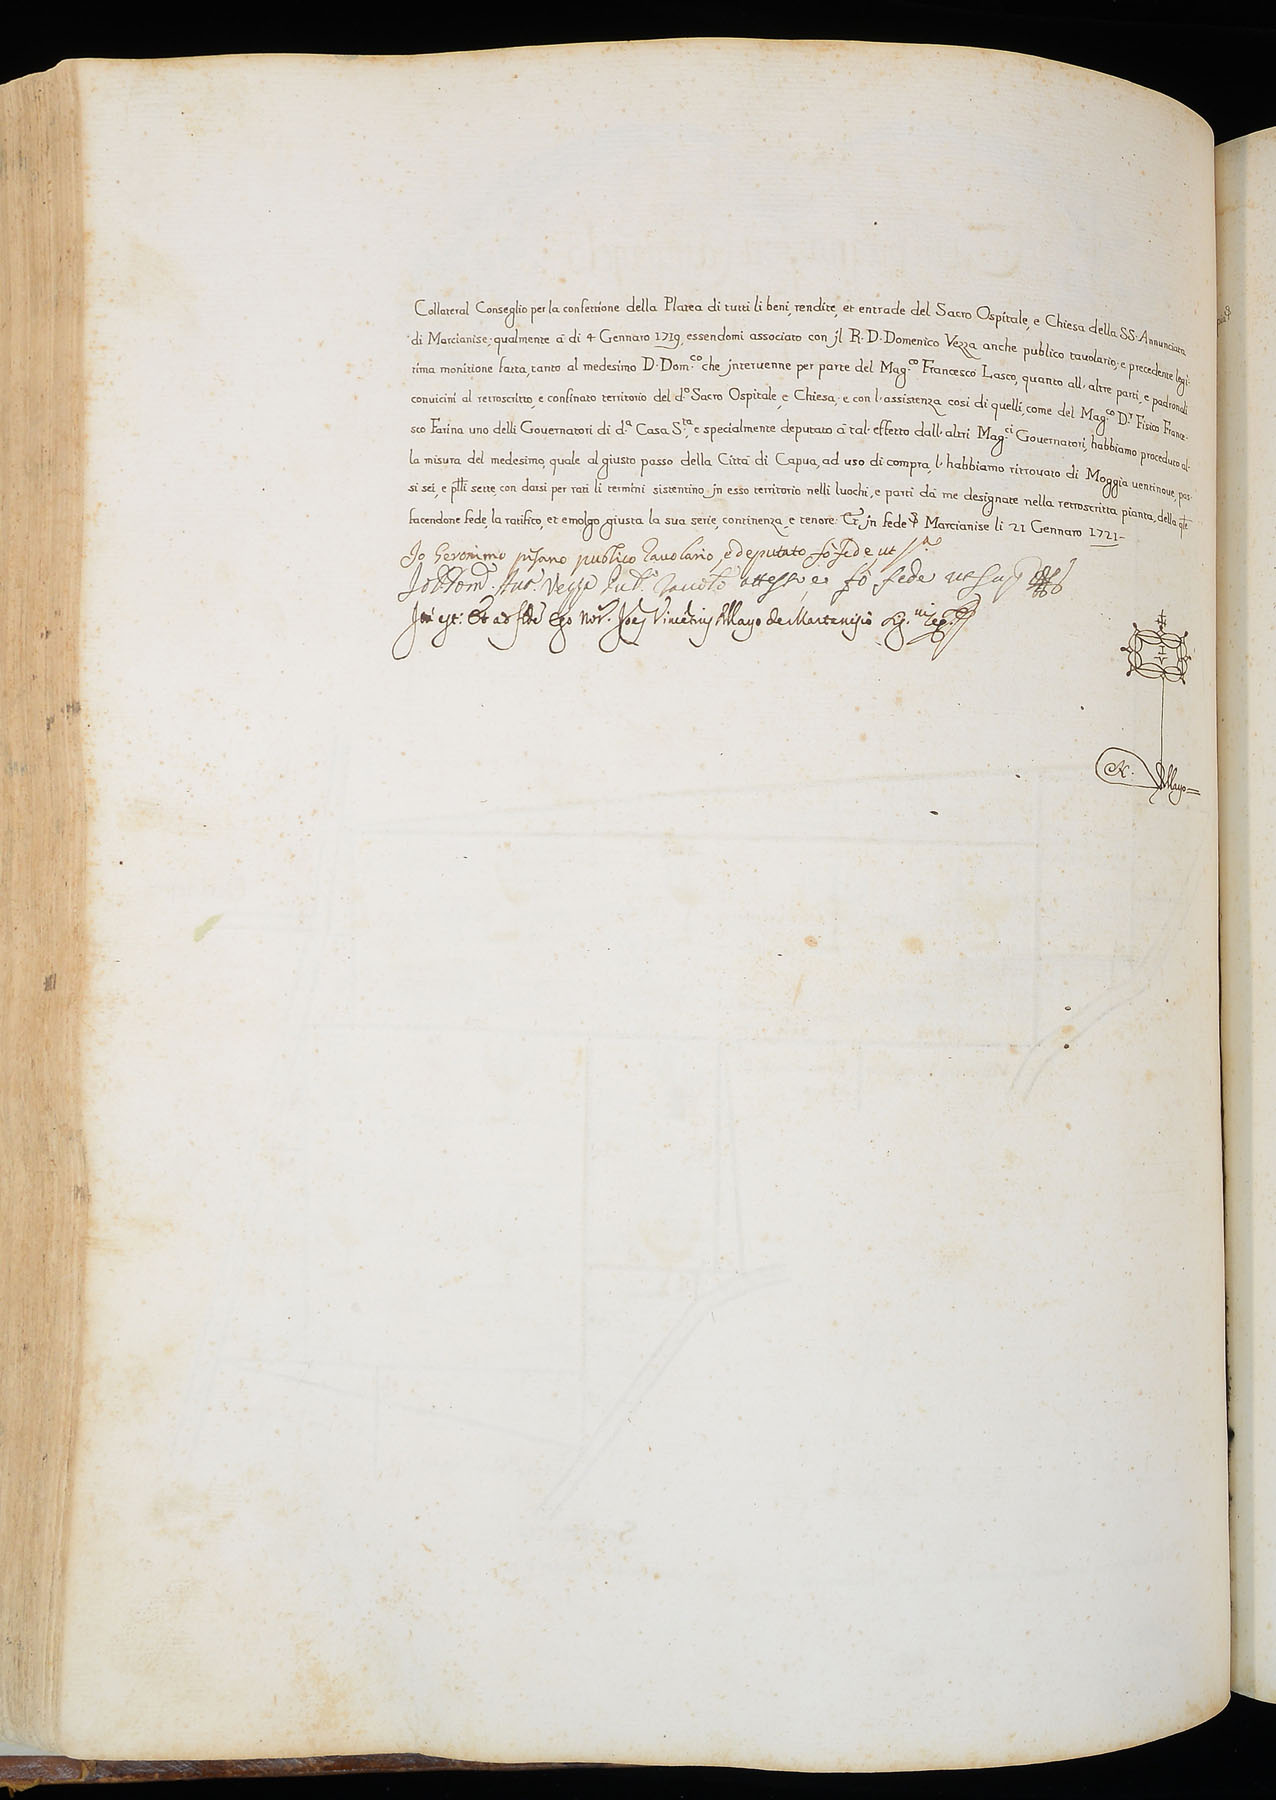 Collateral Conseglio per la confettione della Platea di tutti li beni, rendite, et entrade del Sacro Ospitale, e Chiesa della SS. Annunciata
di Marcianise; qualmente à di 4 Gennaro 1719, essendomi associato con jl R. D. Domenico Vezza anche publico tavolario, e precedente legi-
tima monitione fatta, tanto al medesimo D. Dom.co che jnteruenne per parte del Mag.co Francesco Lasco, quanto all' altre parti, e padronali
conuicini al retroscritto, e confinato territorio del d.o Sacro Ospitale, e Chiesa; e con l'assistenza cosi di quelli, come del Mag.co D.r Fisico France-
sco Farina uno delli Gouernatori di d.a Casa S.ta, e specialmente deputato à tal' effetto dall' altri Mag.ci Gouernatori, habbiamo proceduto al-
la misura del medesimo, quale al giusto passo della Città di Capua, ad uso di compra, l' habbiamo ritrouato di Moggia uentinoue, pas-
si sei, e p̃tti sette, con darsi per rati li termini sistentino jn esso territorio nelli luochi, e parti dà me designate nella retroscritta pianta, della q̃le
facendone fede, la ratifico, et emolgo giusta la sua serie, continenza, e tenore. Et jn fede Marcianise li 21 Gennaro 1721-
Io Geronimo pisano publico tauolario, e deputato fò fede ut s.a
Io D. Dom.co Ant.o Vezza Pub.o attesta, e fò fede ut sup.a
Ita est. Et ad fidem Ego Not. Joes Vincentius Mayo de Martanisio sig.
N. Mayo